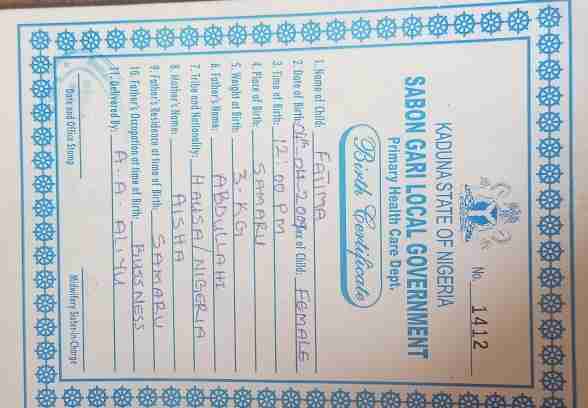 KADUNA STATE OF NIGERIA
No. 1412
SABON GARI LOCAL GOVERNMENT
Primary Health Care Dept.
Birth Certificate
1. Name of Child: FATIMA
2. Date of Birth: 04-2009 Sex of Child: FEMALE
3. Time of Birth: 12:00 PM
4. Place of Birth: SAMARU
5. Weight at Birth: 3-KG
6. Father's Name: ABDULLAHI
7. Tribe and Nationality: HAUSA/NIGERIA
8. Mother's Name: AISHA
9. Father's Residence at time of Birth: SAMARU
10. Father's Occupation at time of Birth: BUSSNESS
11. Delivered By: A.A ALIYU
Date and Office Stamp
Midwifery Sister-in-Charge